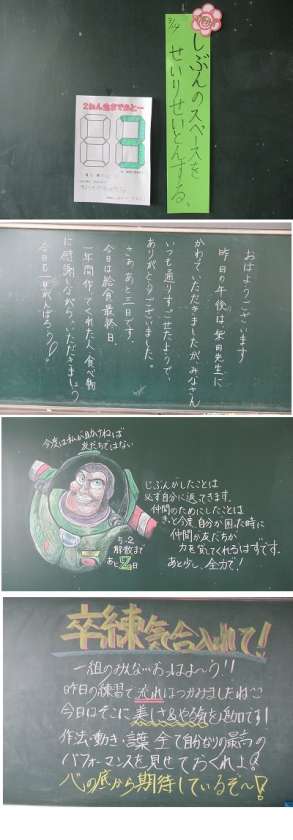 3/14
じぶんのスペースを
せいりせいとんする。
2ねん生まであと…
3
おはようございます
昨日の午後は柴田先生に
かわっていただきましたが、みなさん
いつも通りすごせたようで、
ありがとうございました。
さあ、あと三日です。
今日は給食最終日。
一年間作ってくれた人、食べ物
に感謝しながら、いただきましょう
今日も一日がんばろう!
今度は私が助けねば
友だちではない
じぶんがしたことは
必ず自分に返ってきます。
仲間のためにしたことは
きっと今度、自分が困った時に
仲間が友だちが
力を貸してくれるはずです。
あと少し、全力で!
5-2
解散まで
あと2日
卒練気合入れて!
一組のみんな…おっはよ〜う!!
昨日の練習で流れはつかめましたね
今日はそこに美しさ&やる気を追加です!
作法・動き・言葉 全て自分なりの最高の
パフォーマンスを見せておくれよ
心の底から期待しているぞ〜!